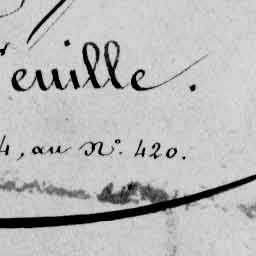 euille.
4, au N.º 420.